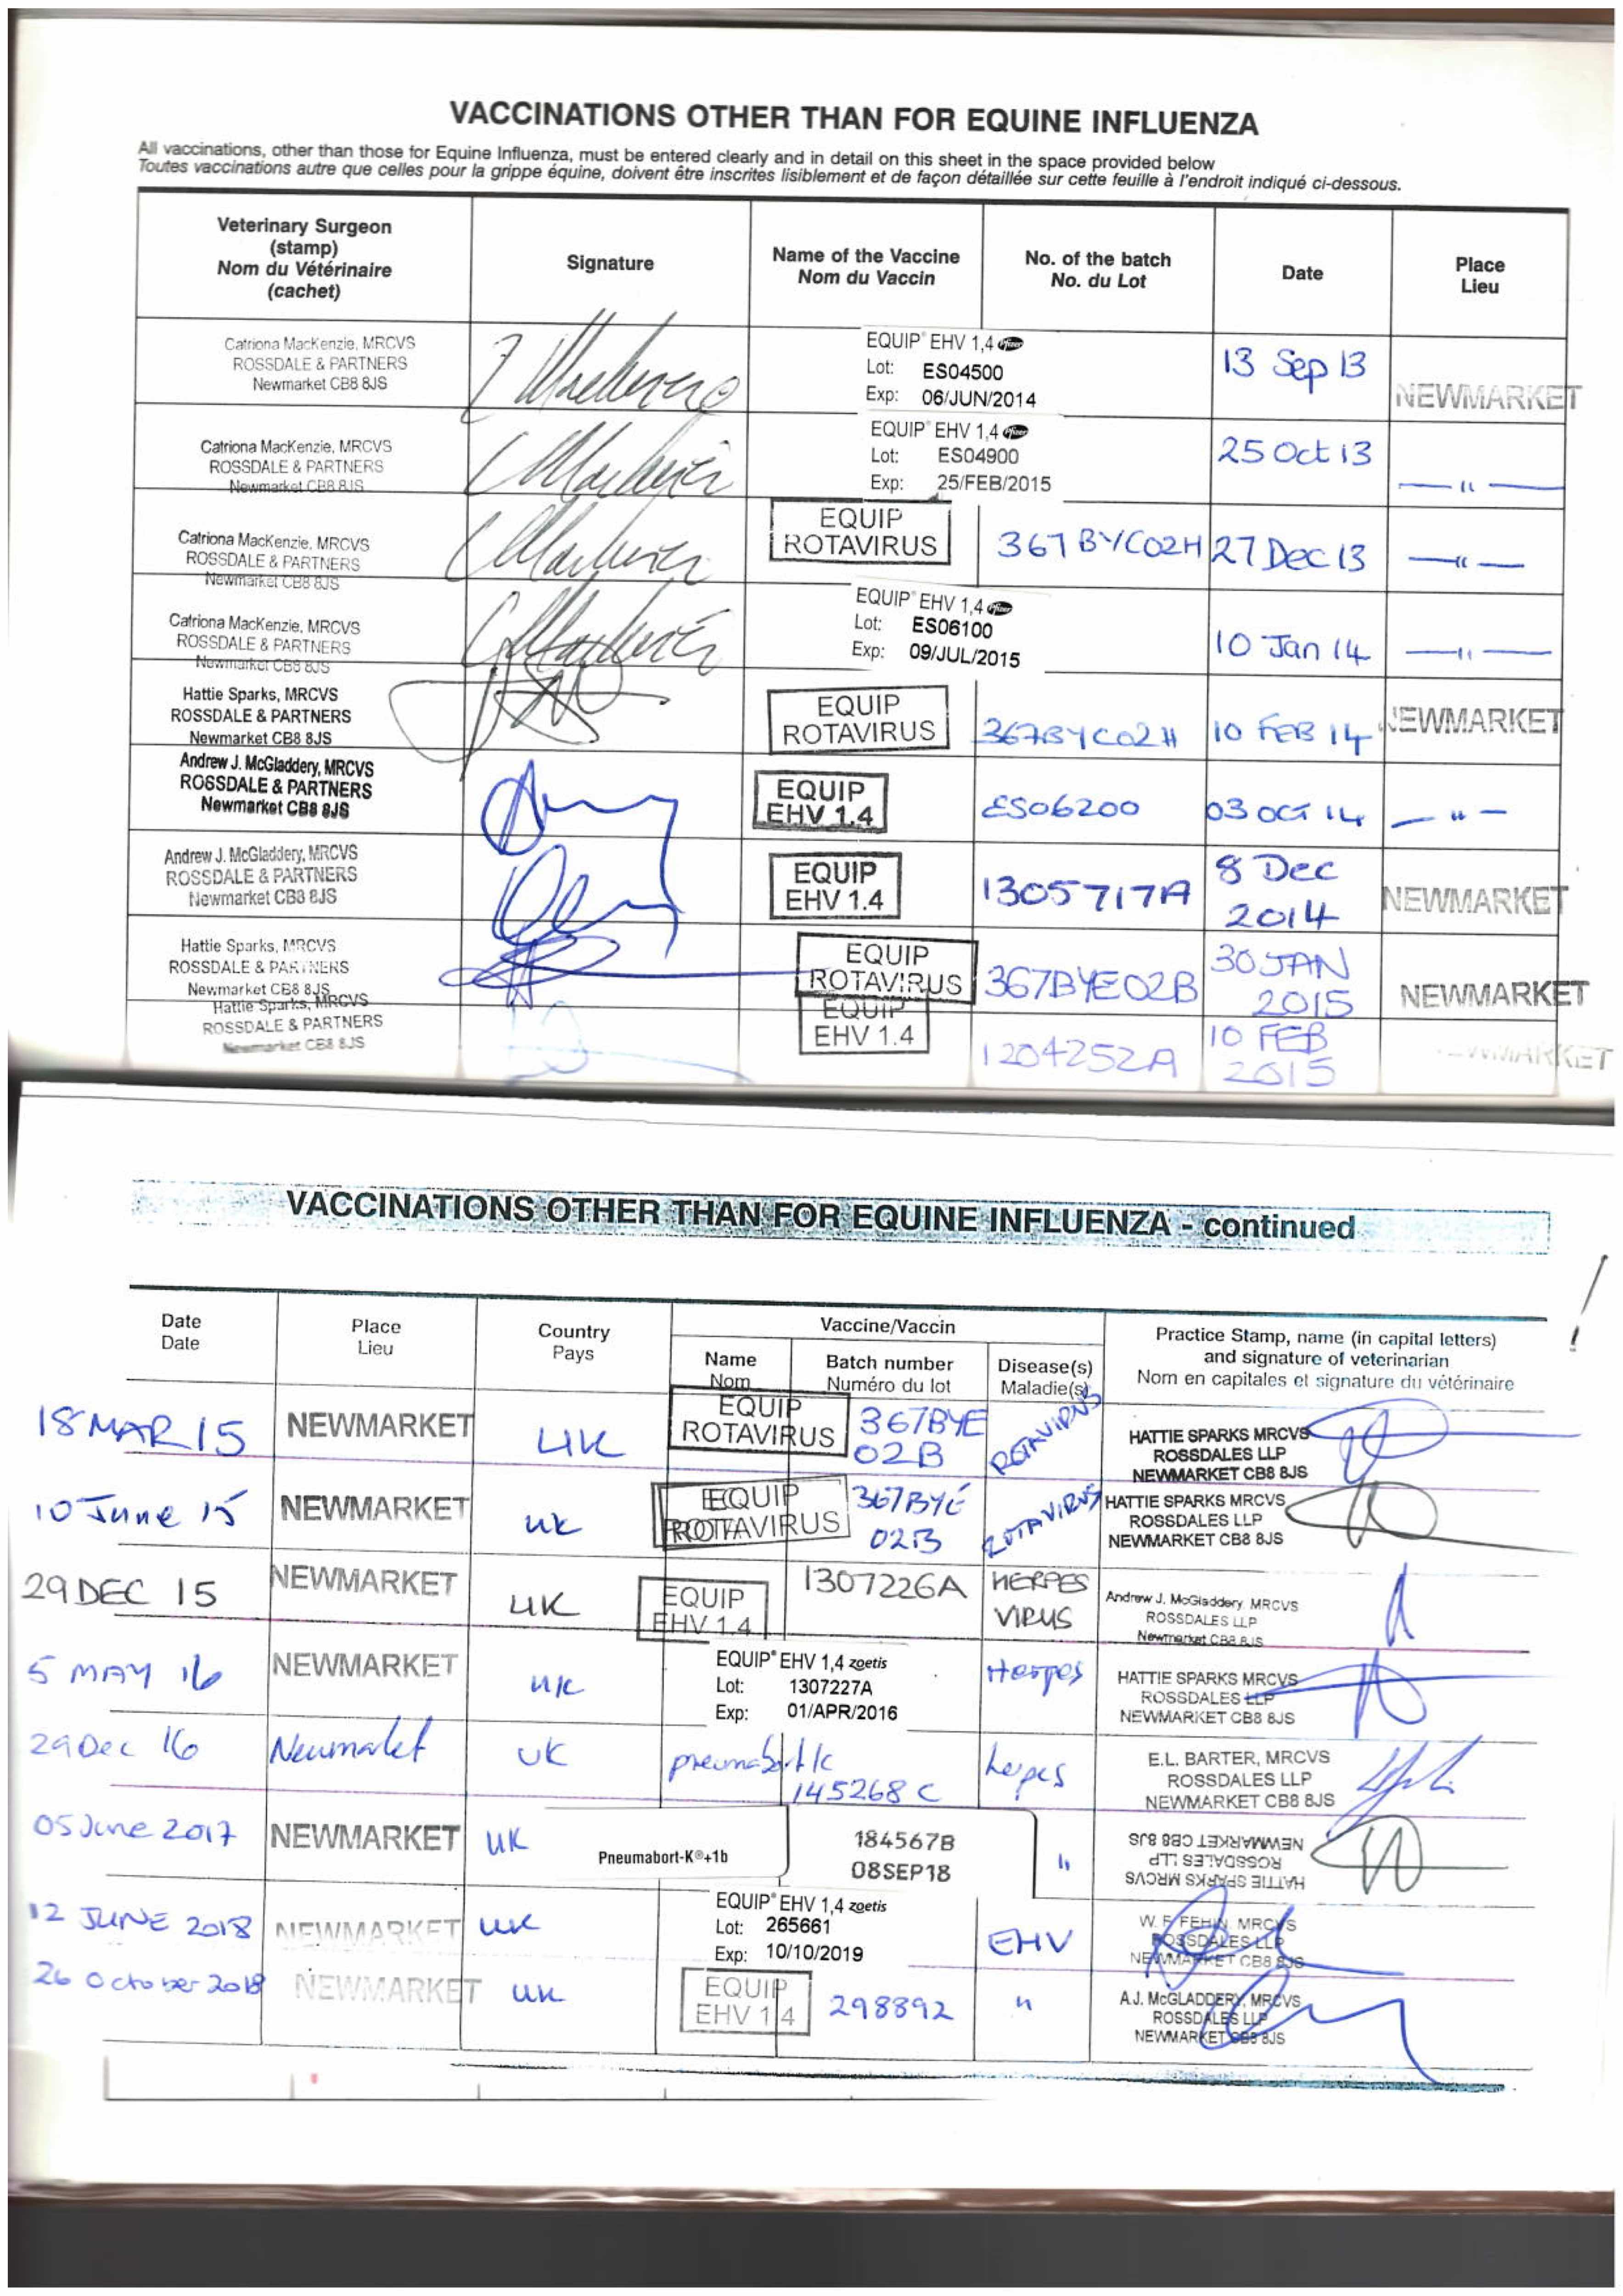 VACCINATIONS OTHER THAN FOR EQUINE INFLUENZA
All vaccinations, other than those for Equine Influenza, must be entered clearly and in detail on this sheet in the space provided below
Toutes vaccinations autre que celles pour la grippe équine, doivent être inscrites lisiblement et de façon détaillée sur cette feuille à l'endroit indiqué ci-dessous.
Veterinary Surgeon
(stamp)
Nom du Vétérinaire
(cachet)
Signature
Name of the Vaccine
Nom du Vaccin
No. of the batch
No. du Lot
Date
Place
Lieu
Catriona MacKenzie, MRCVS
ROSSDALE & PARTNERS
Newmarket CB8 8JS
EQUIP® EHV 1,4 Pfizer
Lot: ES04500
Exp: 06/JUN/2014
13 Sep 13
NEWMARKET
Catriona MacKenzie, MRCVS
ROSSDALE & PARTNERS
Newmarket CB8 8JS
EQUIP® EHV 1,4 Pfizer
Lot: ES04900
Exp: 25/FEB/2015
25 Oct 13
— " —
Catriona MacKenzie, MRCVS
ROSSDALE & PARTNERS
Newmarket CB8 8JS
EQUIP
ROTAVIRUS
367BYC02H
27 Dec 13
— " —
Catriona MacKenzie, MRCVS
ROSSDALE & PARTNERS
Newmarket CB8 8JS
EQUIP® EHV 1,4 Pfizer
Lot: ES06100
Exp: 09/JUL/2015
10 Jan 14
— " —
Hattie Sparks, MRCVS
ROSSDALE & PARTNERS
Newmarket CB8 8JS
EQUIP
ROTAVIRUS
367BYC02H
10 FEB 14
NEWMARKET
Andrew J. McGladdery, MRCVS
ROSSDALE & PARTNERS
Newmarket CB8 8JS
EQUIP
EHV 1.4
ES06200
03 OCT 14
— " —
Andrew J. McGladdery, MRCVS
ROSSDALE & PARTNERS
Newmarket CB8 8JS
EQUIP
EHV 1.4
1305717A
8 Dec
2014
NEWMARKET
Hattie Sparks, MRCVS
ROSSDALE & PARTNERS
Newmarket CB8 8JS
EQUIP
ROTAVIRUS
367BYE02B
30 JAN
2015
NEWMARKET
Hattie Sparks, MRCVS
ROSSDALE & PARTNERS
Newmarket CB8 8JS
EQUIP
EHV 1.4
1204252A
10 FEB
2015
NEWMARKET
VACCINATIONS OTHER THAN FOR EQUINE INFLUENZA - continued
Date
Date
Place
Lieu
Country
Pays
Vaccine/Vaccin
Name
Nom
Batch number
Numéro du lot
Disease(s)
Maladie(s)
Practice Stamp, name (in capital letters)
and signature of veterinarian
Nom en capitales et signature du vétérinaire
18 MAR 15
NEWMARKET
UK
EQUIP
ROTAVIRUS
367BYE
02B
ROTAVIRUS
HATTIE SPARKS MRCVS
ROSSDALES LLP
NEWMARKET CB8 8JS
10 June 15
NEWMARKET
UK
EQUIP
ROTAVIRUS
367BYE
02B
ROTAVIRUS
HATTIE SPARKS MRCVS
ROSSDALES LLP
NEWMARKET CB8 8JS
29 DEC 15
NEWMARKET
UK
EQUIP
EHV 1.4
1307226A
HERPES
VIRUS
Andrew J. McGladdery MRCVS
ROSSDALES LLP
Newmarket CB8 8JS
5 MAY 16
NEWMARKET
UK
EQUIP® EHV 1,4 zoetis
Lot: 1307227A
Exp: 01/APR/2016
Herpes
HATTIE SPARKS MRCVS
ROSSDALES LLP
NEWMARKET CB8 8JS
29 Dec 16
Newmarket
UK
pneumabort/k
145268 C
herpes
E.L. BARTER, MRCVS
ROSSDALES LLP
NEWMARKET CB8 8JS
05 June 2017
NEWMARKET
UK
Pneumabort-K®+1b
184567B
08SEP18
"
HATTIE SPARKS MRCVS
ROSSDALES LLP
NEWMARKET CB8 8JS
12 JUNE 2018
NEWMARKET
UK
EQUIP® EHV 1,4 zoetis
Lot: 265661
Exp: 10/10/2019
EHV
W. F. FEHIN, MRCVS
ROSSDALES LLP
NEWMARKET CB8 8JS
26 October 2018
NEWMARKET
UK
EQUIP
EHV 1 4
298892
"
A.J. McGLADDERY, MRCVS
ROSSDALES LLP
NEWMARKET CB8 8JS